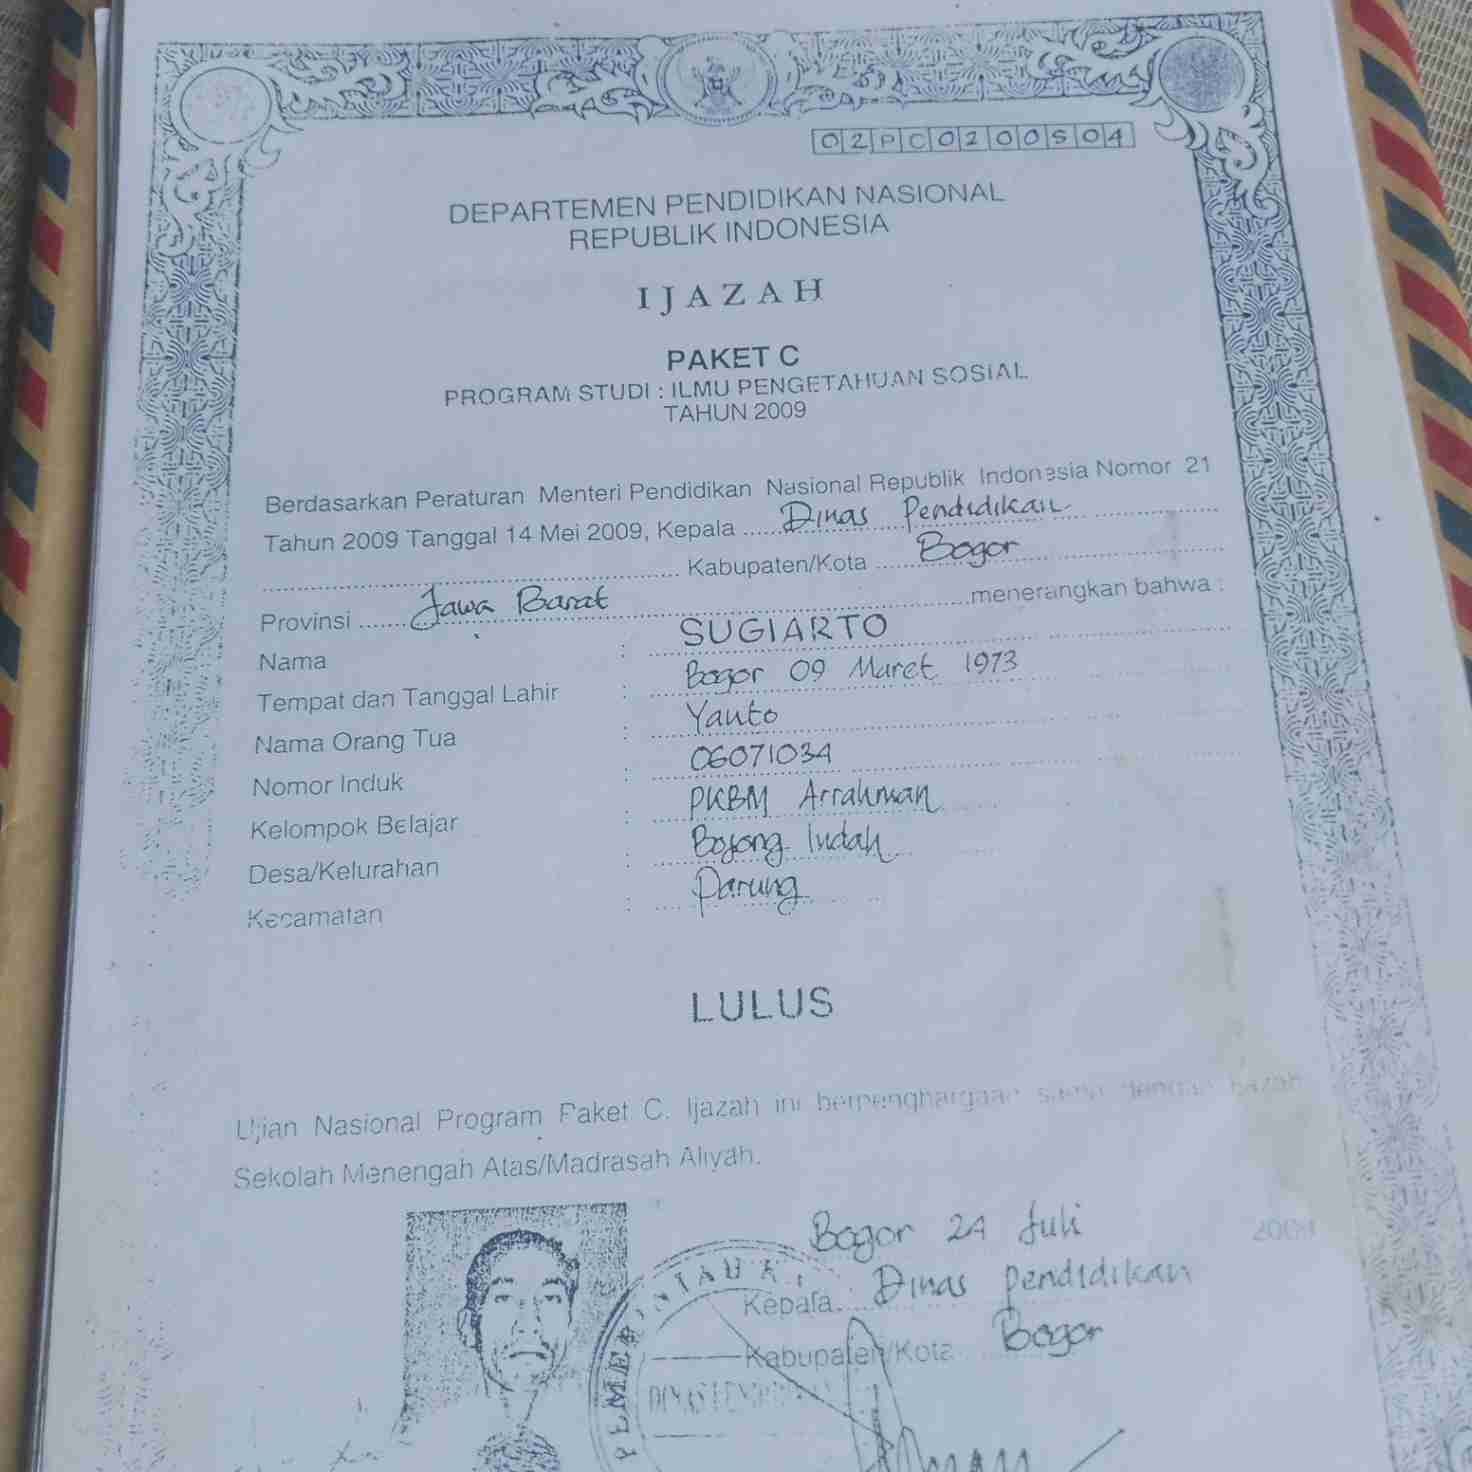 02PC0200504
DEPARTEMEN PENDIDIKAN NASIONAL
REPUBLIK INDONESIA
IJAZAH
PAKET C
PROGRAM STUDI : ILMU PENGETAHUAN SOSIAL
TAHUN 2009
Berdasarkan Peraturan Menteri Pendidikan Nasional Republik Indonesia Nomor 21
Tahun 2009 Tanggal 14 Mei 2009, Kepala Dinas Pendidikan
Kabupaten/Kota Bogor
Provinsi Jawa Barat menerangkan bahwa :
Nama : SUGIARTO
Tempat dan Tanggal Lahir : Bogor 09 Maret 1973
Nama Orang Tua : Yanto
Nomor Induk : 06071034
Kelompok Belajar : PKBM Arrahman
Desa/Kelurahan : Bojong Indah
Kecamatan : Parung
LULUS
Ujian Nasional Program Paket C. Ijazah ini berpenghargaan sama dengan Ijazah
Sekolah Menengah Atas/Madrasah Aliyah.
Bogor 24 Juli 2009
Kepala Dinas pendidikan
Kabupaten/Kota Bogor